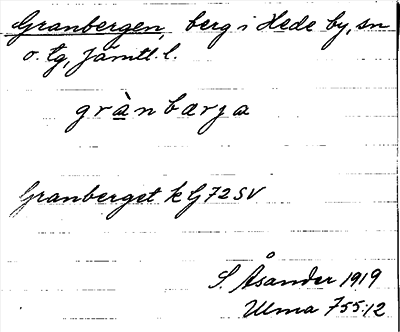 Granbergen, berg i Hede by, sn
o. tg, Jämtl. l.
grànbærja
Granberget k G 72 SV
S. Åsander 1919
Ulma 755:12